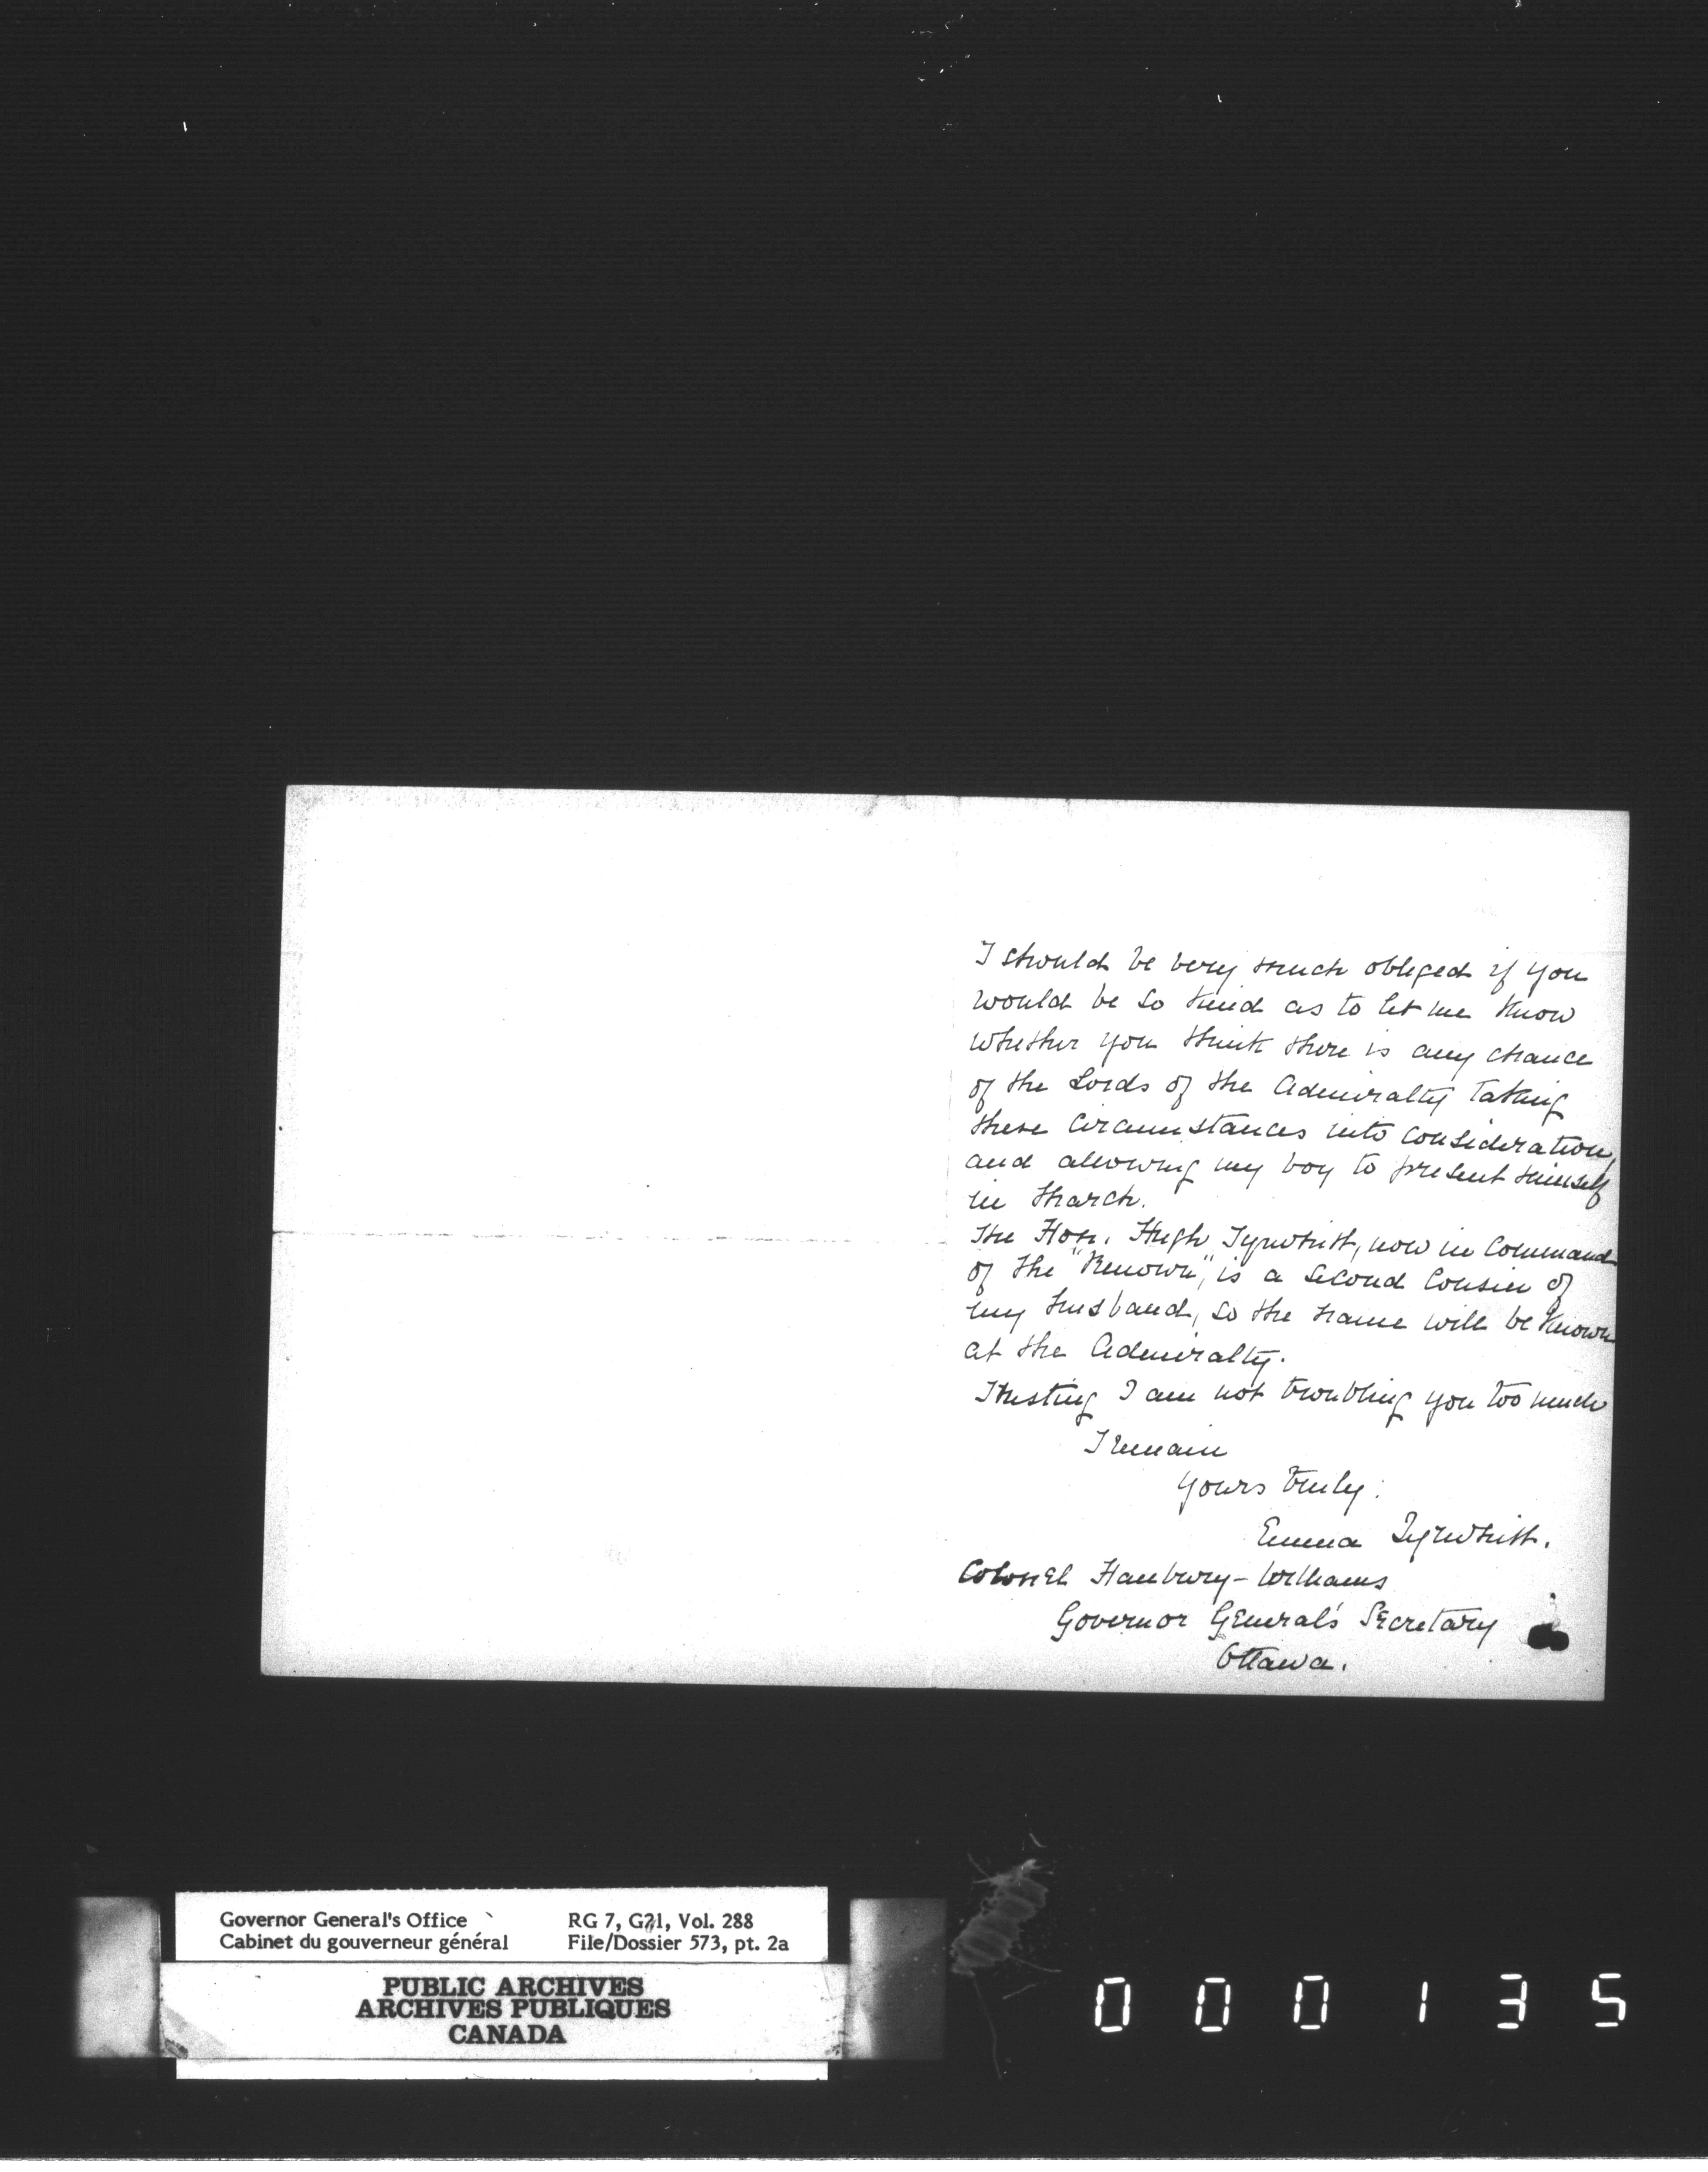 I should be very much obliged if you
would be so kind as to let me know
whether you think there is any chance
of the Lords of the Admiralty taking
these circumstances into consideration,
and allowing my boy to present himself
in March.
The Hon. Hugh Tyrwhitt, now in command
of the "Renown", is a second cousin of
my husband, so the name will be known
at the Admiralty.
Trusting I am not troubling you too much
I remain
Yours truly:
Emma Tyrwhitt.
Colonel Hanbury-Williams
Governor General's Secretary
Ottawa.
Governor General's Office
Cabinet du gouverneur général
RG 7, G21, Vol. 288
File/Dossier 573, pt. 2a
PUBLIC ARCHIVES
ARCHIVES PUBLIQUES
CANADA
000135